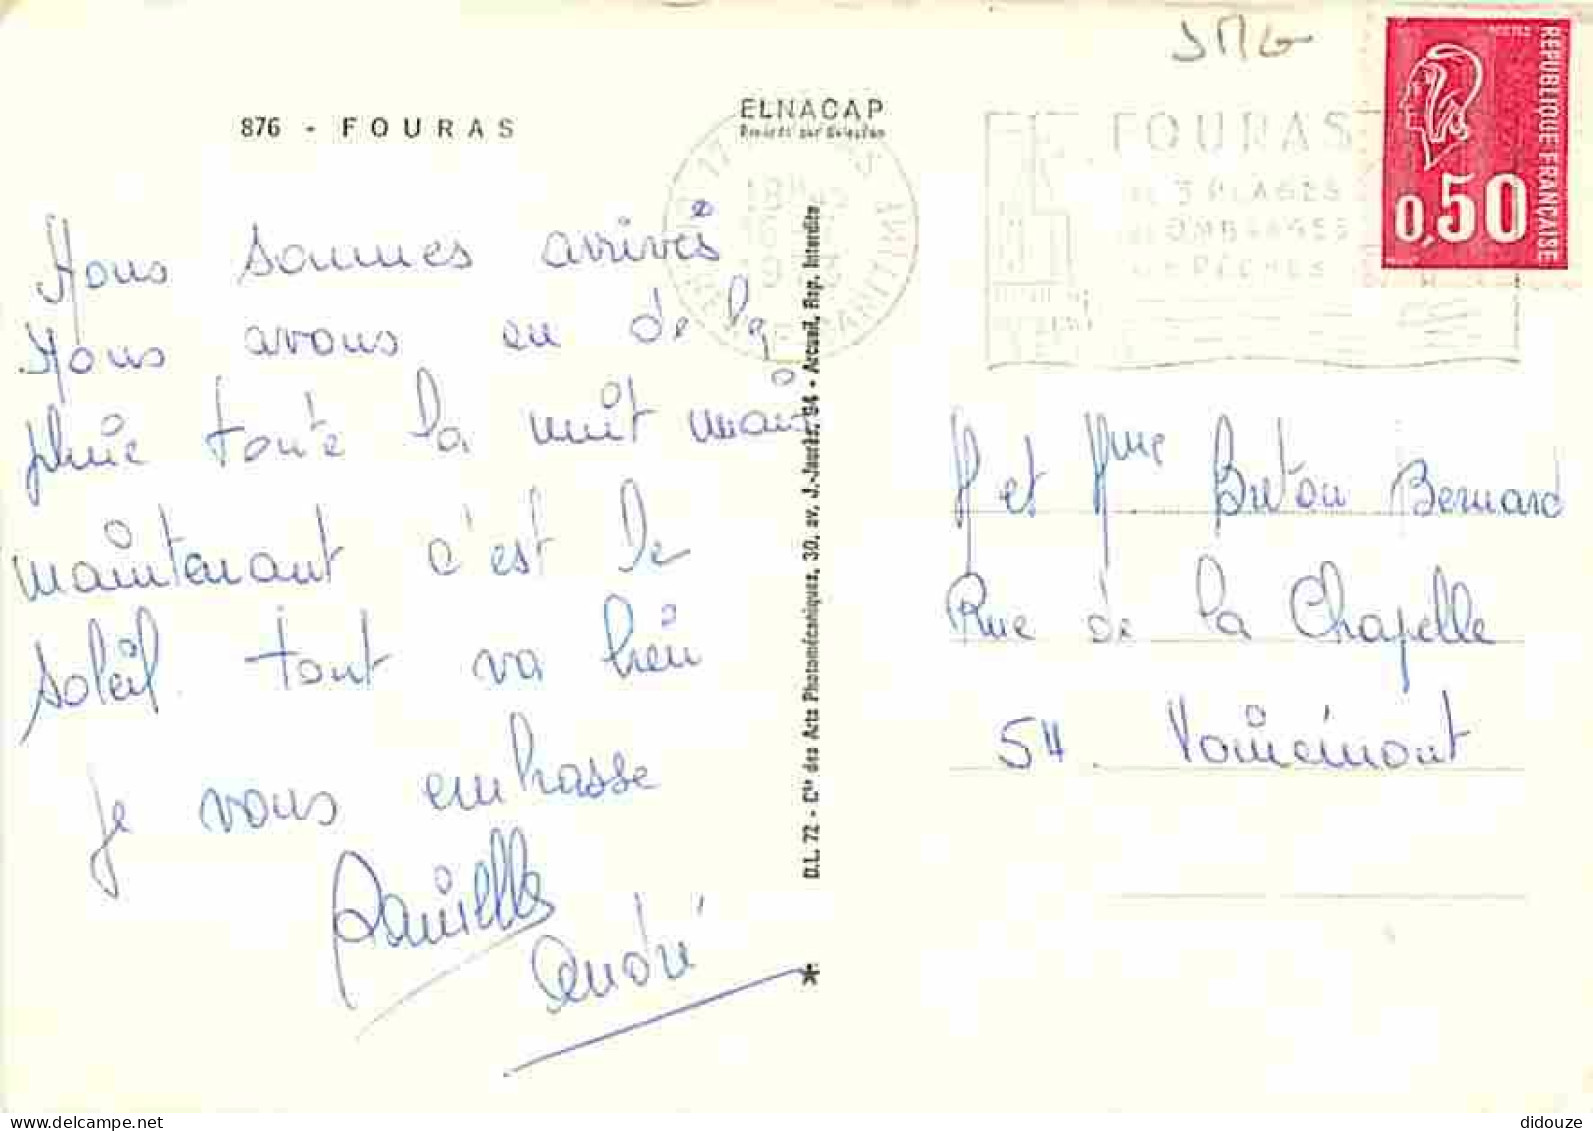 JMG
876 - FOURAS
ELNACAP
RÉPUBLIQUE FRANÇAISE
POSTES
0,50
FOURAS
3 PLAGES
OMBRAGES
17
18H
CHARENTE MARITIME
Nous sommes arrivés
Nous avons eu de la
pluie toute la nuit mais
maintenant c'est le
soleil tout va bien
je vous embrasse
Danielle
André
D.L. 72 - Cie des Arts Photomécaniques, 30, av. J.-Jaurès, 94 - Arcueil, Rep. Interdite
M et Mme Breton Bernard
Rue de la Chapelle
54. Voinémont
delcampe.net
didouze